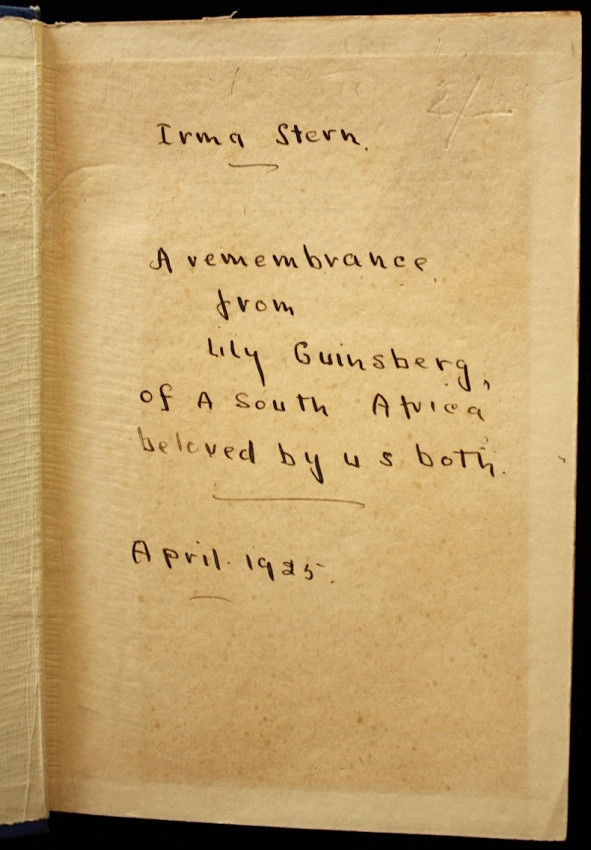 Irma Stern.
A remembrance
from
Lily Guinsberg,
of A South Africa
beloved by us both.
April. 1925.